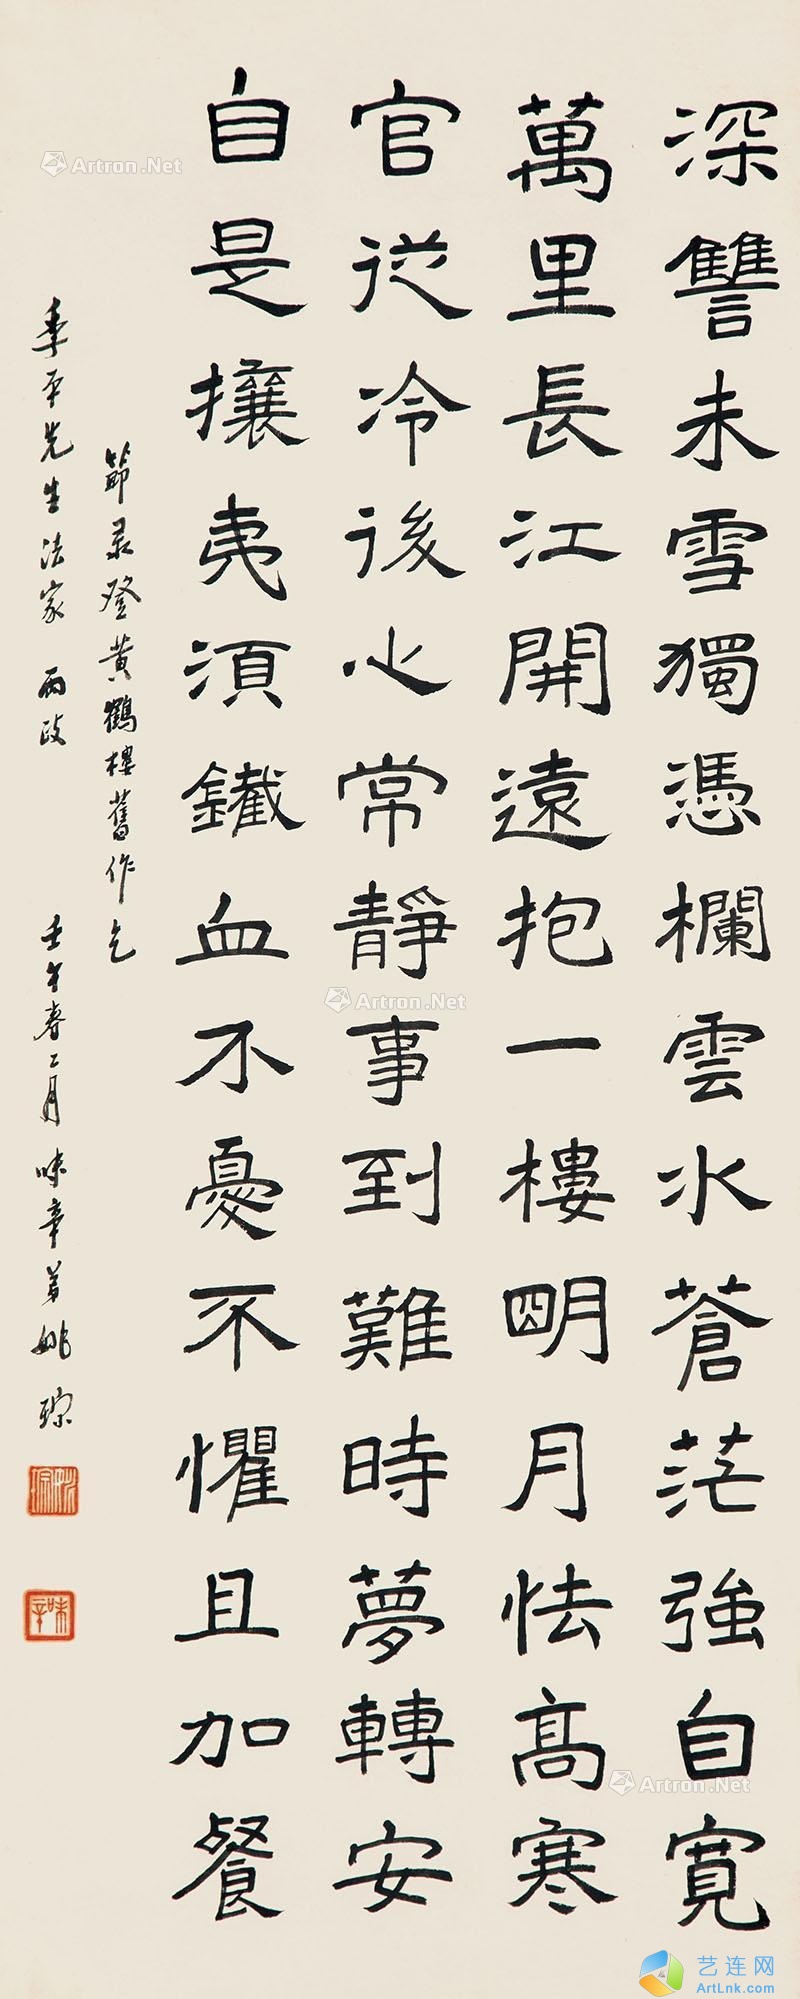 深讐未雪獨憑欄雲水蒼茫強自寬
萬里長江開遠抱一樓朙月怯高寒
官從冷後心常靜事到難時夢轉安
自是攘夷須鐵血不憂不懼且加餐
節录登黃鶴樓舊作乞
季平先生法家 兩政 壬午春二月 味辛弟姚琮
味辛
Artron.Net
Artron.Net
Artron.Net
艺连网
ArtLnk.com